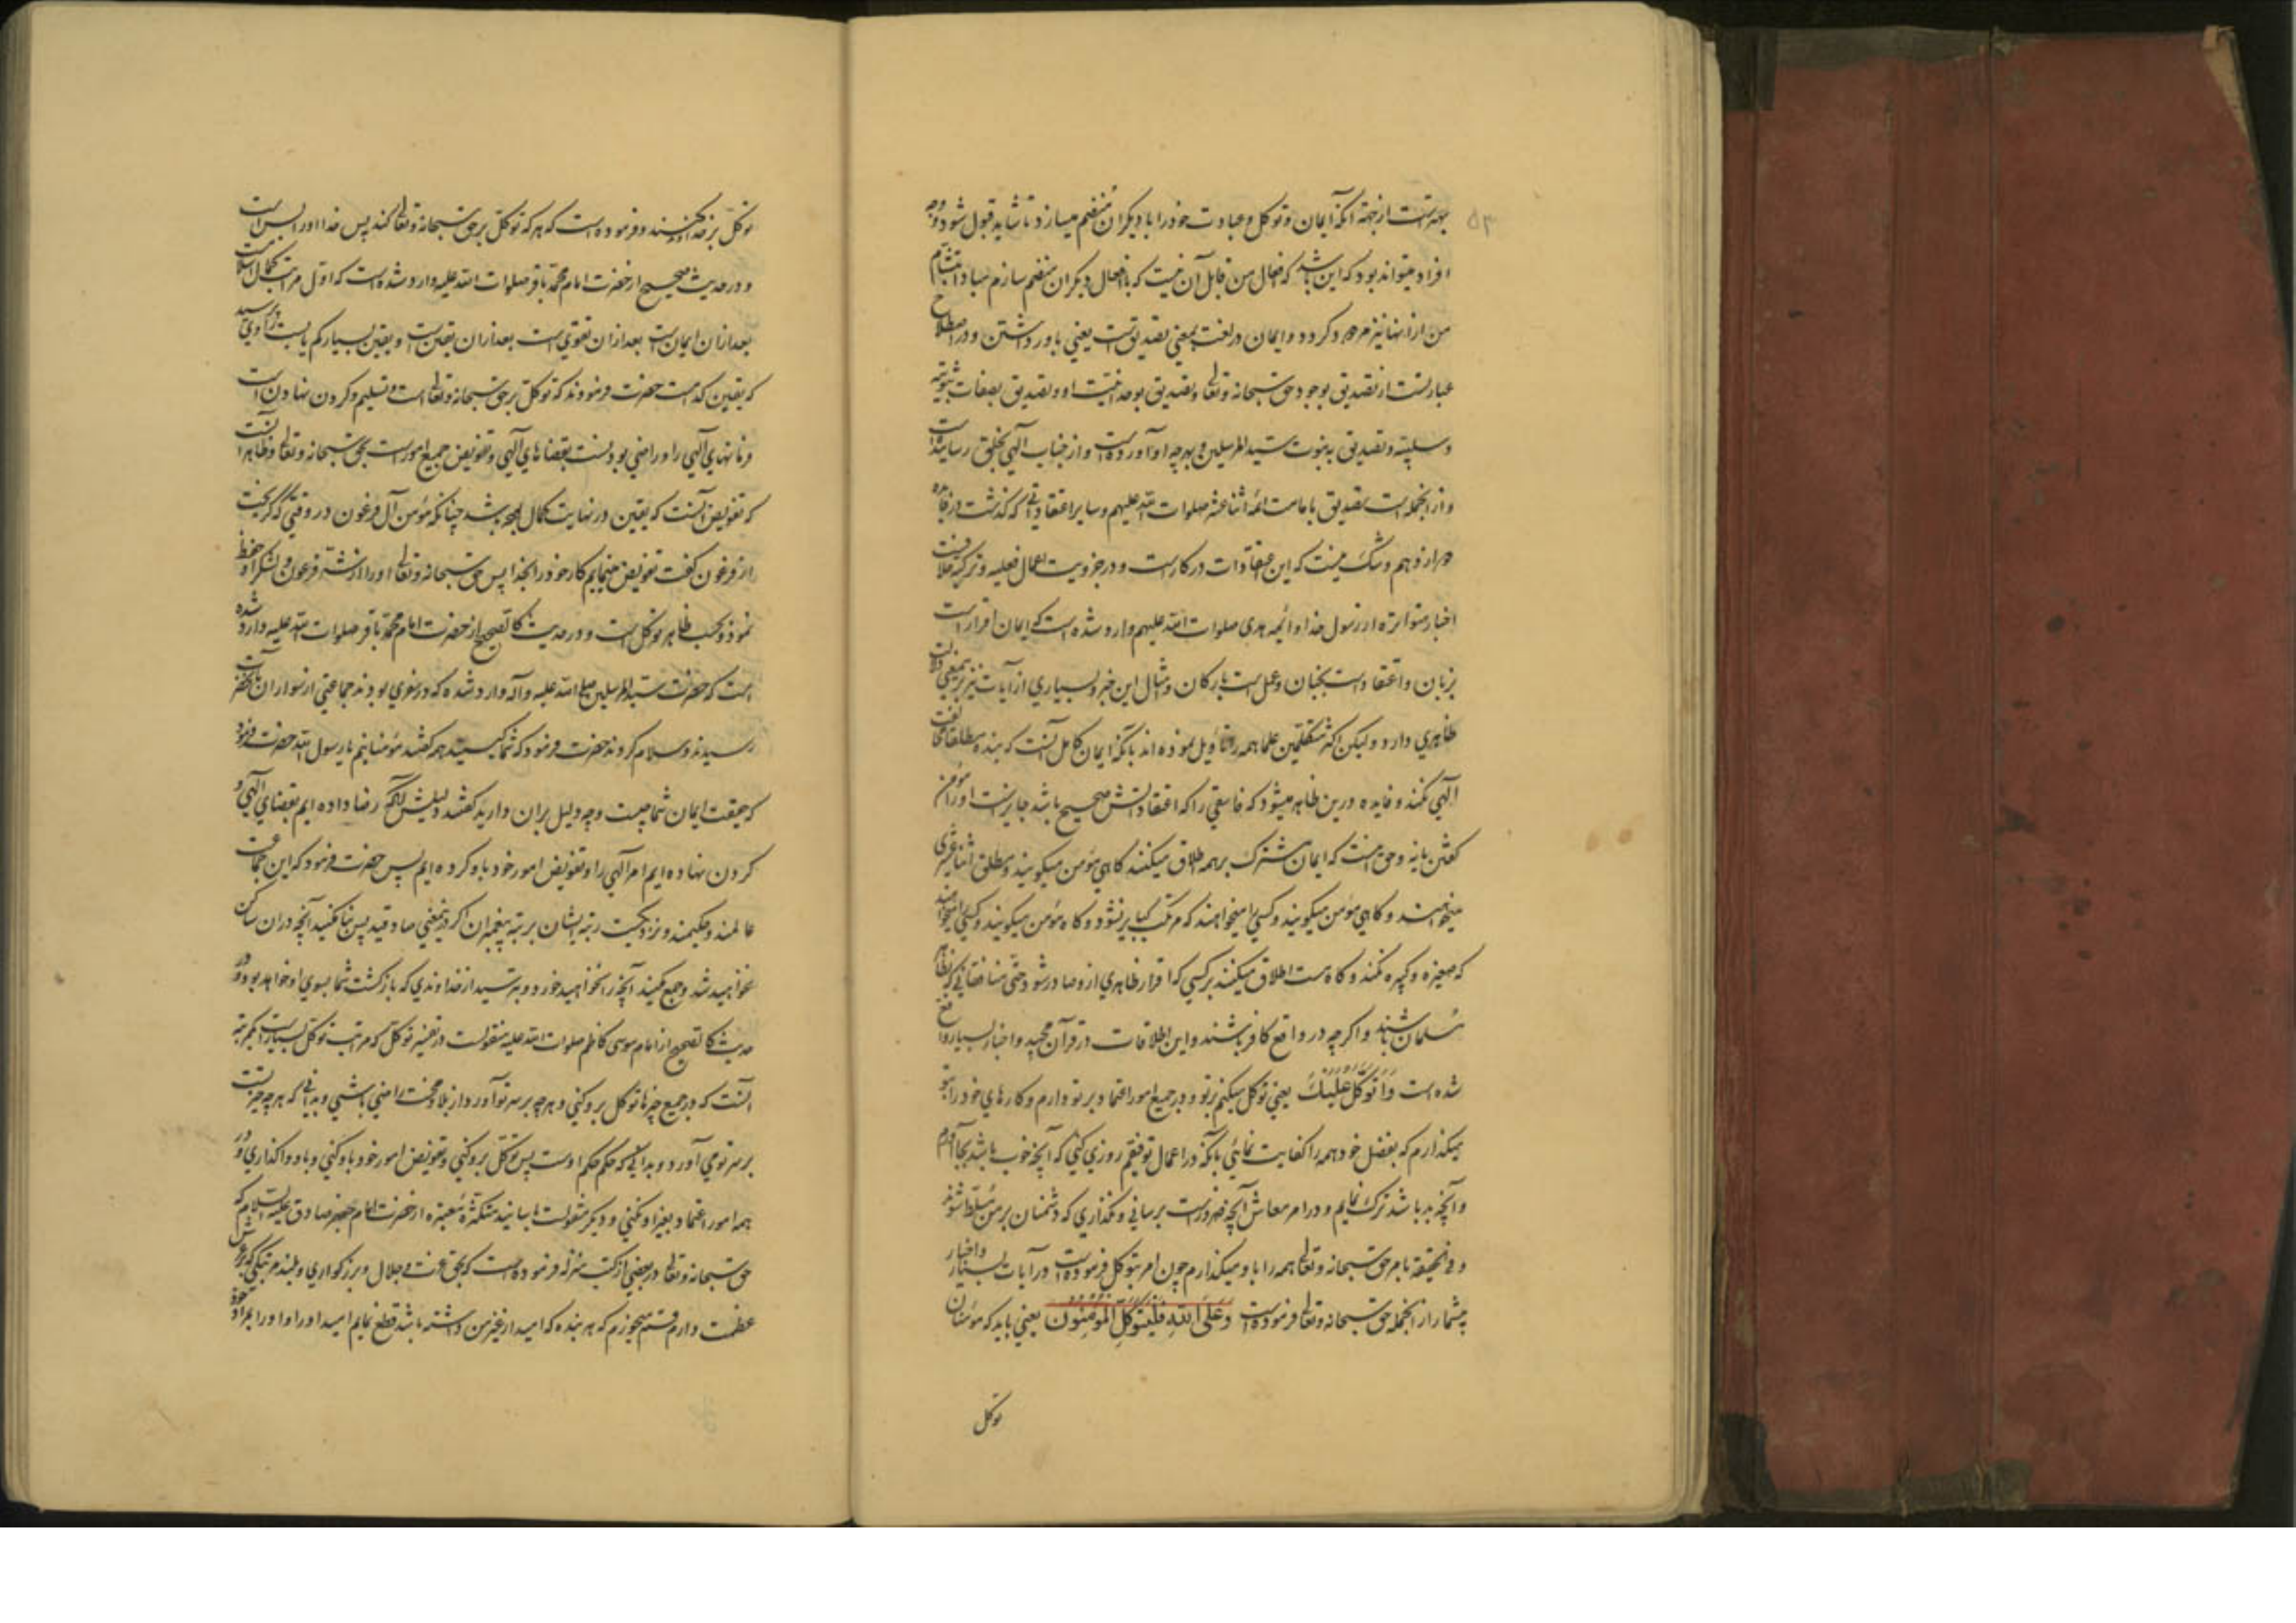 ۵۳
بهتر است از جهة آنکه ایمان و توکل و عبادت خود را با دیکران منضم میسازد تا شاید قبول شود و وجه
افراد میتواند بود که این باشد که افعال من قابل آن نیست که بافعال دیکران منضم سازم مبادا بشآمت
من از انها نیز مردود کردد و ایمان در لغت بمعنی تصدیق است یعنی باور داشتن و در اصطلاح
عبارتست از تصدیق بوجود حق سبحانه و تعالی و تصدیق بوحدانیت او و تصدیق بصفات ثبوتیه
و سلبیه و تصدیق به نبوت سید المرسلین و بهرچه او آورده است و از جناب آلهی بخلق رسانیده است
و از انجمله است تصدیق بامامت ائمه اثنا عشر صلوات الله علیهم و سایر اعتقاداتی که کذشت در
و شک نیست که این اعتقادات در کار است و در جزویت اعمال فعلیه و ترکیه خلافست
اخبار متواتره از رسول خدا و ائمه هدی صلوات الله علیهم وارد شده است که ایمان اقرار است
بزبان و اعتقاد است بجنان و عمل است بارکان و امثال این خبر و بسیاری از آیات نیز برین معنی دلالت
ظاهری دارد و لیکن اکثر متکلمین علما همه را تاویل نموده اند بانکه ایمان کامل آنست که بنده مطلقا مخالفت
آلهی نکند و فایده درین ظاهر میشود که فاسقی را که اعتقاداتش صحیح باشد جایز است او را مؤمن
کفتن یا نه و حق اینست که ایمان مشترک بر همه اطلاق میکنند کاهی مؤمن میکویند و مطلق اثنا عشری
میخواهند و کاهی مؤمن میکویند و کسی را میخواهند که مرتکب کبایر نشود و کاه مؤمن میکویند و کسی را میخواهند
که صغیره و کبیره نکند و کاه هست اطلاق میکنند بر کسی که اقرار ظاهری ازو صادر شود حتی منافقانی که بظاهر
مسلمان باشند و اکرچه در واقع کافر باشند و این اطلاقات در قرآن مجید و اخبار بسیار واقع
شده است وَاَتَوَکَّلُ عَلَیْکَ یعنی توکل میکنم بر تو و در جمیع امور اعتماد بر تو دارم و کارهای خود را بتو
میکذارم که بفضل خود همه را کفایت نمائی بانکه در اعمال توفیقم روزی کنی که آنچه خوب باشد بجا آورم
و آنچه بد باشد ترک نمایم و در امر معاش آنچه ضرور است برسانی و نکذاری که دشمنان بر من مسلط شوند
و فی الحقیقة بامر حق سبحانه و تعالی همه را باو میکذارم چون امر بتوکل فرموده است در آیات بسیار و اخبار
بیشمار از انجمله حق سبحانه و تعالی فرموده است وَعَلَی اللهِ فَلْیَتَوَکَّلِ الْمُؤْمِنُونَ یعنی باید که مؤمنان
توکل
توکل بر خدا کنند و فرموده است که هر که توکل بر حق سبحانه و تعالی کند پس خدا او را بس است
و در حدیث صحیح از حضرت امام محمد باقر صلوات الله علیه وارد شده است که اول مرتبه کمال اسلامست
بعد از ان ایمان است بعد از ان تقوی است بعد از ان یقین است و یقین بسیار کم یابست راوی پرسید
که یقین کدام است حضرت فرمودند که توکل بر حق سبحانه و تعالی است و تسلیم و کردن نهادن است
فرمانهای آلهی را و راضی بودنست بقضاهای آلهی و تفویض جمیع امور است بحق سبحانه و تعالی و ظاهر آنست
که تفویض آنست که یقین در نهایت کمال باشد چنانکه مؤمن آل فرعون در وقتی که کریخت
از فرعون کفت تفویض مینمایم کار خود را بخدا پس حق سبحانه و تعالی او را از شر فرعون و لشکر او حفظ
نمود و بحسب ظاهر توکل است و در حدیث کالصحیح از حضرت امام محمد باقر صلوات الله علیه وارد شده
است که حضرت سید المرسلین صلی الله علیه و آله وارد شده که در سفری بودند جماعتی از سواران بآنحضرت
رسیدند و سلام کردند حضرت فرمود که شما کیستید همه کفتند مؤمنانیم یا رسول الله حضرت فرمود
که حقیقت ایمان شما چیست و چه دلیل بران دارید کفتند دلیلش آنکه رضا داده ایم بقضای آلهی و
کردن نهاده ایم امر آلهی را و تفویض امور خود باو کرده ایم پس حضرت فرمود که این جماعت
عالمند و حکیمند و نزدیکست رتبه ایشان برتبه پیغمبران اکر درین معنی صادقید پس بنا مکنید آنچه دران ساکن
نخواهید شد و جمع مکنید آنچه را نخواهید خورد و بترسید از خداوندی که بازکشت شما بسوی او خواهد بود و در
حدیث کالصحیح از امام موسی کاظم صلوات الله علیه منقولست در تفسیر توکل که مراتب توکل بسیار است یک مرتبه
آنست که در جمیع چیزها توکل برو کنی و هرچه بر سر تو آورد از بلا و محنت راضی باشی و بدانی که هرچه خیر تست
بر سر تو می آورد و بدانی که حکم حکم اوست پس توکل برو کنی و تفویض امور خود باو کنی و باو واکذاری و در
همه امور اعتماد بغیر او نکنی و دیکر منقولست باسانید متکثره معتبره از حضرت امام جعفر صادق علیه السلام که
حق سبحانه و تعالی در بعضی از کتب منزله فرموده است که بحق عزت و جلال و بزرکواری و بلند مرتبکی که بر عرش
عظمت دارم قسم میخورم که هر بنده که امید از غیر من داشته باشد قطع نمایم امید او را و او را بمراد خود